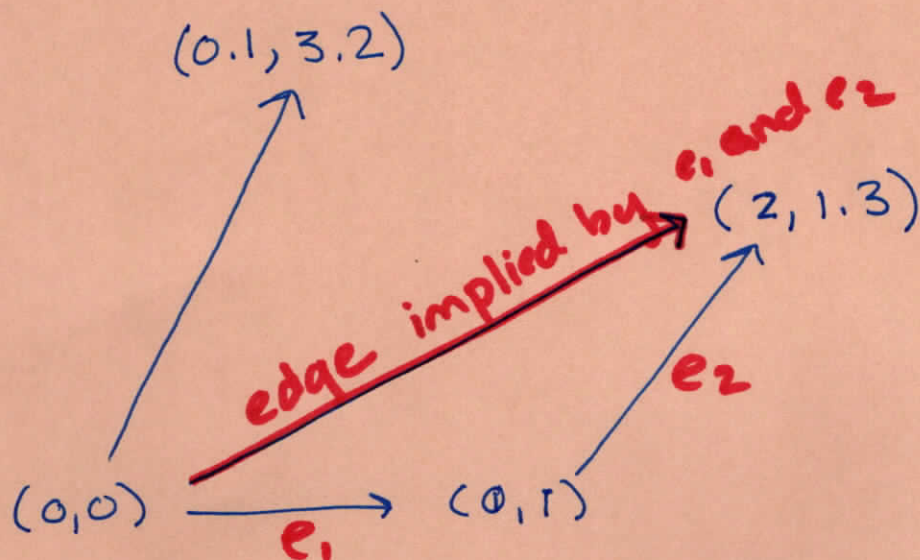 (0.1, 3.2)
edge implied by e1 and e2
(2, 1.3)
e2
(0,0)
(0,1)
e1